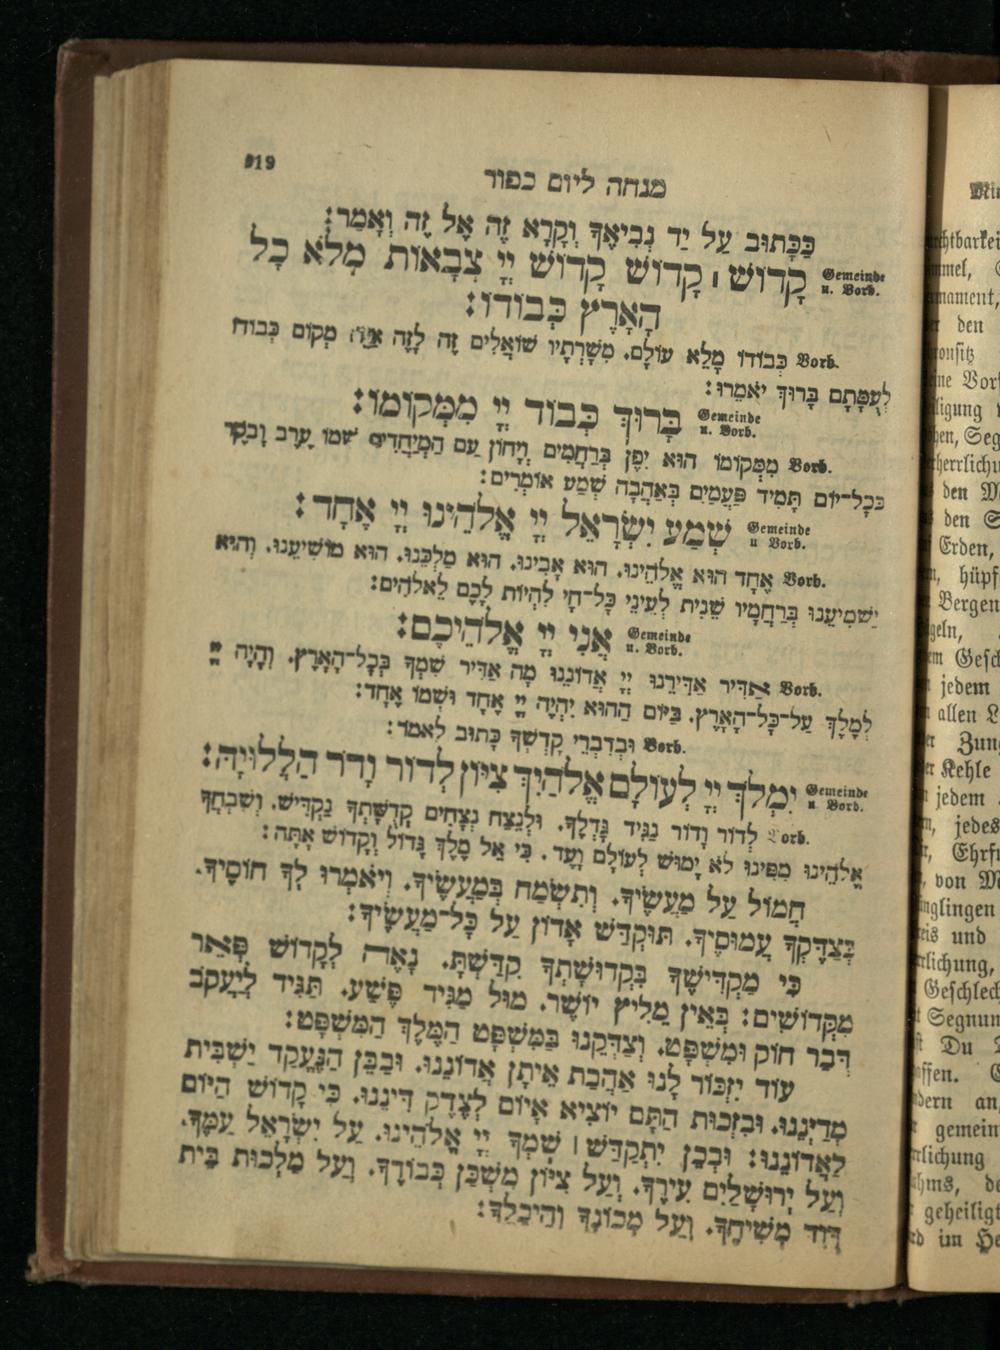 919
מנחה ליום כפור
כַּכָּתוּב עַל יַד נְבִיאֶךָ וְקָרָא זֶה אֶל זֶה וְאָמַר:
Gemeinde u. Vorb. קָדוֹשׁ ׀ קָדוֹשׁ קָדוֹשׁ יְיָ צְבָאוֹת מְלֹא כָל
הָאָרֶץ כְּבוֹדוֹ:
Vorb. כְּבוֹדוֹ מָלֵא עוֹלָם. מְשָׁרְתָיו שׁוֹאֲלִים זֶה לָזֶה אַיֵּה מְקוֹם כְּבוֹדוֹ
לְעֻמָּתָם בָּרוּךְ יֹאמֵרוּ:
Gemeinde u. Vorb. בָּרוּךְ כְּבוֹד יְיָ מִמְּקוֹמוֹ:
Vorb. מִמְּקוֹמוֹ הוּא יִפֶן בְּרַחֲמִים וְיָחוֹן עַם הַמְיַחֲדִים שְׁמוֹ עֶרֶב וָבֹקֶר
בְּכָל־יוֹם תָּמִיד פַּעֲמַיִם בְּאַהֲבָה שְׁמַע אוֹמְרִים:
Gemeinde u Vorb. שְׁמַע יִשְׂרָאֵל יְיָ אֱלֹהֵינוּ יְיָ אֶחָד:
Vorb. אֶחָד הוּא אֱלֹהֵינוּ. הוּא אָבִינוּ. הוּא מַלְכֵּנוּ. הוּא מוֹשִׁיעֵנוּ. וְהוּא
יַשְׁמִיעֵנוּ בְּרַחֲמָיו שֵׁנִית לְעֵינֵי כָּל־חָי לִהְיוֹת לָכֶם לֵאלֹהִים:
Gemeinde u. Vorb. אֲנִי יְיָ אֱלֹהֵיכֶם:
Vorb. אַדִּיר אַדִּירֵנוּ יְיָ אֲדוֹנֵנוּ מָה אַדִּיר שִׁמְךָ בְּכָל־הָאָרֶץ. וְהָיָה יְיָ
לְמֶלֶךְ עַל־כָּל־הָאָרֶץ. בַּיּוֹם הַהוּא יִהְיֶה יְיָ אֶחָד וּשְׁמוֹ אֶחָד:
Vorb. וּבְדִבְרֵי קָדְשְׁךָ כָּתוּב לֵאמֹר:
Gemeinde u Vorb. יִמְלֹךְ יְיָ לְעוֹלָם אֱלֹהַיִךְ צִיּוֹן לְדוֹר וָדֹר הַלְלוּיָהּ:
Vorb. לְדוֹר וָדוֹר נַגִּיד גָּדְלֶךָ. וּלְנֵצַח נְצָחִים קְדֻשָּׁתְךָ נַקְדִּישׁ. וְשִׁבְחֲךָ
אֱלֹהֵינוּ מִפִּינוּ לֹא יָמוּשׁ לְעוֹלָם וָעֶד. כִּי אֵל מֶלֶךְ גָּדוֹל וְקָדוֹשׁ אָתָּה:
חֲמוֹל עַל מַעֲשֶׂיךָ. וְתִשְׂמַח בְּמַעֲשֶׂיךָ. וְיֹאמְרוּ לְךָ חוֹסֶיךָ.
בְּצַדֶּקְךָ עֲמוּסֶיךָ. תּוּקְדַּשׁ אָדוֹן עַל כָּל־מַעֲשֶׂיךָ:
כִּי מַקְדִּישֶׁיךָ בִּקְדוּשָׁתְךָ קִדַּשְׁתָּ. נָאֶה לְקָדוֹשׁ פְּאֵר
מִקְּדוֹשִׁים: בְּאֵין מֵלִיץ יוֹשֶׁר. מוּל מַגִּיד פֶּשַׁע. תַּגִּיד לְיַעֲקֹב
דְּבַר חוֹק וּמִשְׁפָּט. וְצַדְּקֵנוּ בַּמִּשְׁפָּט הַמֶּלֶךְ הַמִּשְׁפָּט:
עוֹד יִזְכּוֹר לָנוּ אַהֲבַת אֵיתָן אֲדוֹנֵנוּ. וּבַבֵּן הַנֶּעֱקַד יַשְׁבִּית
מְדַיְנֵנוּ. וּבִזְכוּת הַתָּם יוֹצִיא אָיוֹם לְצֶדֶק דִּינֵנוּ. כִּי קָדוֹשׁ הַיּוֹם
לַאֲדוֹנֵנוּ: וּבְכֵן יִתְקַדַּשׁ ׀ שִׁמְךָ יְיָ אֱלֹהֵינוּ. עַל יִשְׂרָאֵל עַמֶּךָ.
וְעַל יְרוּשָׁלַיִם עִירֶךָ. וְעַל צִיּוֹן מִשְׁכַּן כְּבוֹדֶךָ. וְעַל מַלְכוּת בֵּית
דָּוִד מְשִׁיחֶךָ. וְעַל מְכוֹנְךָ וְהֵיכָלֶךָ: